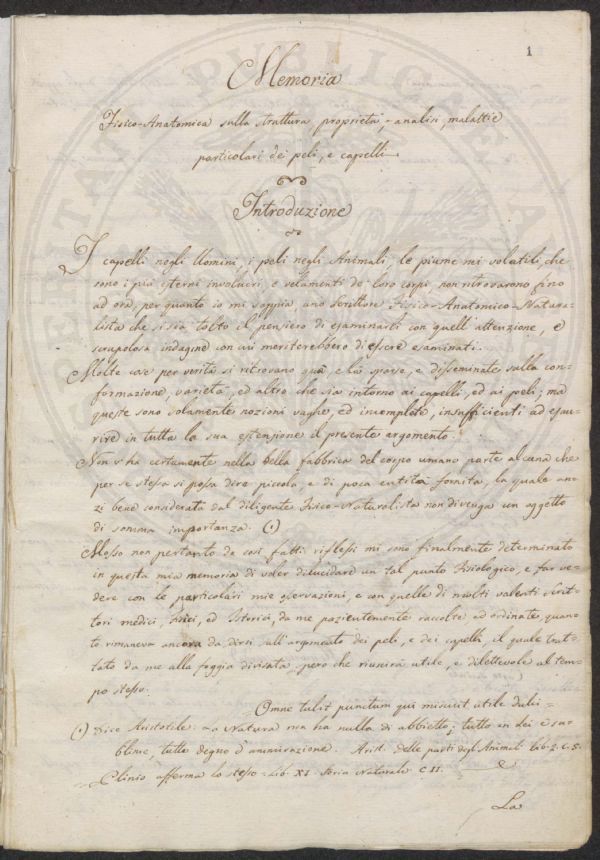 1
Memoria
Fisico-Anatomica sulla struttura, proprietà, analisi, malattie
particolari dei peli, e capelli
Introduzione
I capelli negli Uomini, i peli negli Animali, le piume nei volatili, che
sono i più esterni involucri, e velamenti de' loro corpi, non ritrovarono fino
ad ora, per quanto io mi sappia, uno scrittore Fisico-Anatomico-Natura-
lista che si sia tolto il pensiero di esaminarli con quell'attenzione, e
scrupolosa indagine con cui meriterebbero di essere esaminati.
Molte cose per verità si ritrovano quà e là sparse, e disseminate sulla con-
formazione, varietà, ed altro che sia intorno ai capelli, ed ai peli; ma
queste sono solamente nozioni vaghe, ed incomplete, insufficienti ad esau-
rire in tutta la sua estensione il presente argomento.
Non v'ha certamente nella bella fabbrica del corpo umano parte alcuna che
per se stessa si possa dire piccola, e di poca entità fornita, la quale an-
zi bene considerata dal diligente Fisico-Naturalista non divenga un oggetto
di somma importanza. (·)
Mosso non pertanto da così fatti riflessi mi sono finalmente determinato
in questa mia memoria di voler dilucidare un tal punto Fisiologico, e far ve-
dere con le particolari mie osservazioni, e con quelle di molti valenti scrit-
tori medici, fisici, ed Istorici, da me pazientemente raccolte, ed ordinate, quan-
to rimaneva ancora da dirsi sull'argomento dei peli, e dei capelli, il quale trat-
tato da me alla foggia divisata, spero che riunirà utile, e dilettevole al tem-
po stesso.
Omne tulit punctum qui miscuit utile dulci=
(·) Dice Aristotile: La Natura non ha nulla di abbietto; tutto in lei è su-
blime, tutto degno d'ammirazione. Arist. delle parti degl'Animal. lib. 2. C. 5.
Plinio afferma lo stesso. Lib. XI. Storia Naturale C. II.
La